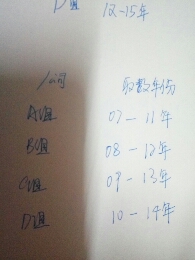 D组 12-15年
公司 取数年份
A组 07-11年
B组 08-12年
C组 09-13年
D组 10-14年